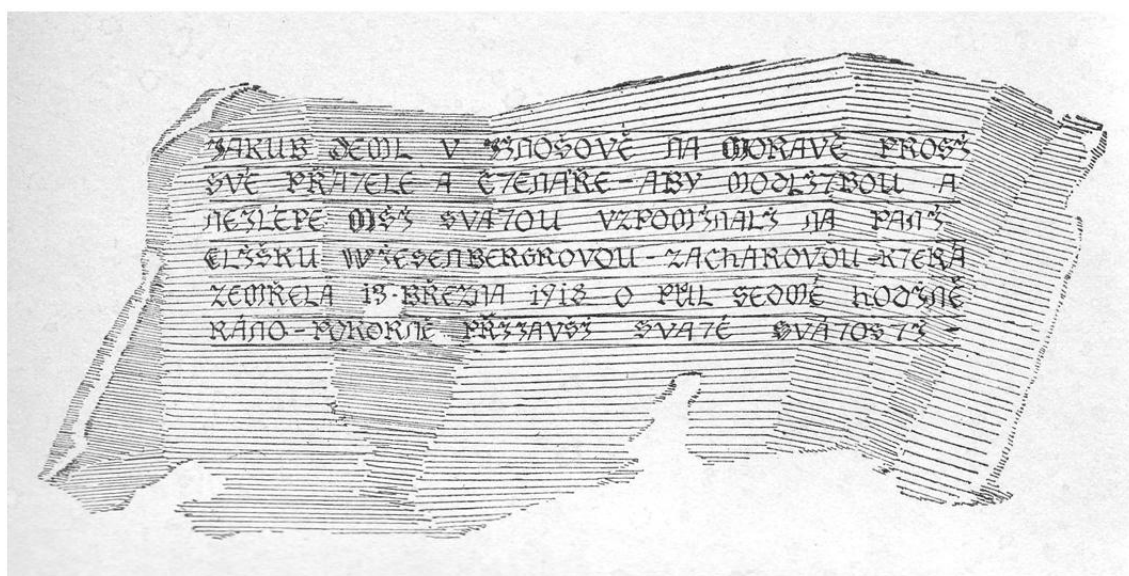 JAKUB DEML V JINOŠOVĚ NA MORAVĚ PROSÍ
SVÉ PŘÁTELE A ČTENÁŘE-ABY MODLITBOU A
NEJLÉPE MŠÍ SVATOU VZPOMÍNALI NA PANÍ
ELIŠKU WIESENBERGROVOU-ZACHAROVOU-KTERÁ
ZEMŘELA 13·BŘEZNA 1918 O PŮL SEDMÉ HODINĚ
RÁNO-POKORNĚ PŘIJAVŠI SVATÉ SVÁTOSTI-